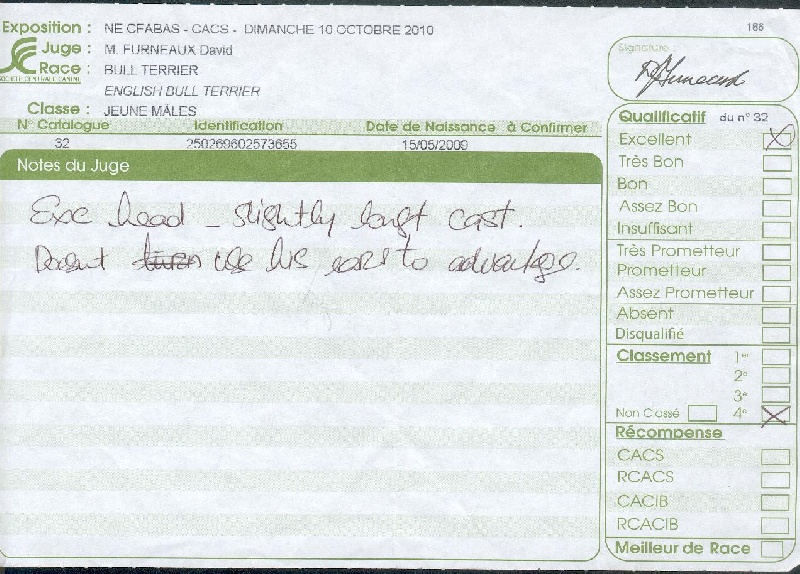 186
Exposition : NE CFABAS - CACS - DIMANCHE 10 OCTOBRE 2010
Juge : M. FURNEAUX David
Race : BULL TERRIER
SOCIETE CENTRALE CANINE
ENGLISH BULL TERRIER
Classe : JEUNE MÂLES
N° Catalogue Identification Date de Naissance à Confirmer
32 250269602573655 15/05/2009
Notes du Juge
Exc head - slightly long cast.
Doesnt turn use his ears to advantage.
Signature :
Qualificatif du n° 32
Excellent
Très Bon
Bon
Assez Bon
Insuffisant
Très Prometteur
Prometteur
Assez Prometteur
Absent
Disqualifié
Classement 1er
2e
3e
Non Classé 4e
Récompense
CACS
RCACS
CACIB
RCACIB
Meilleur de Race